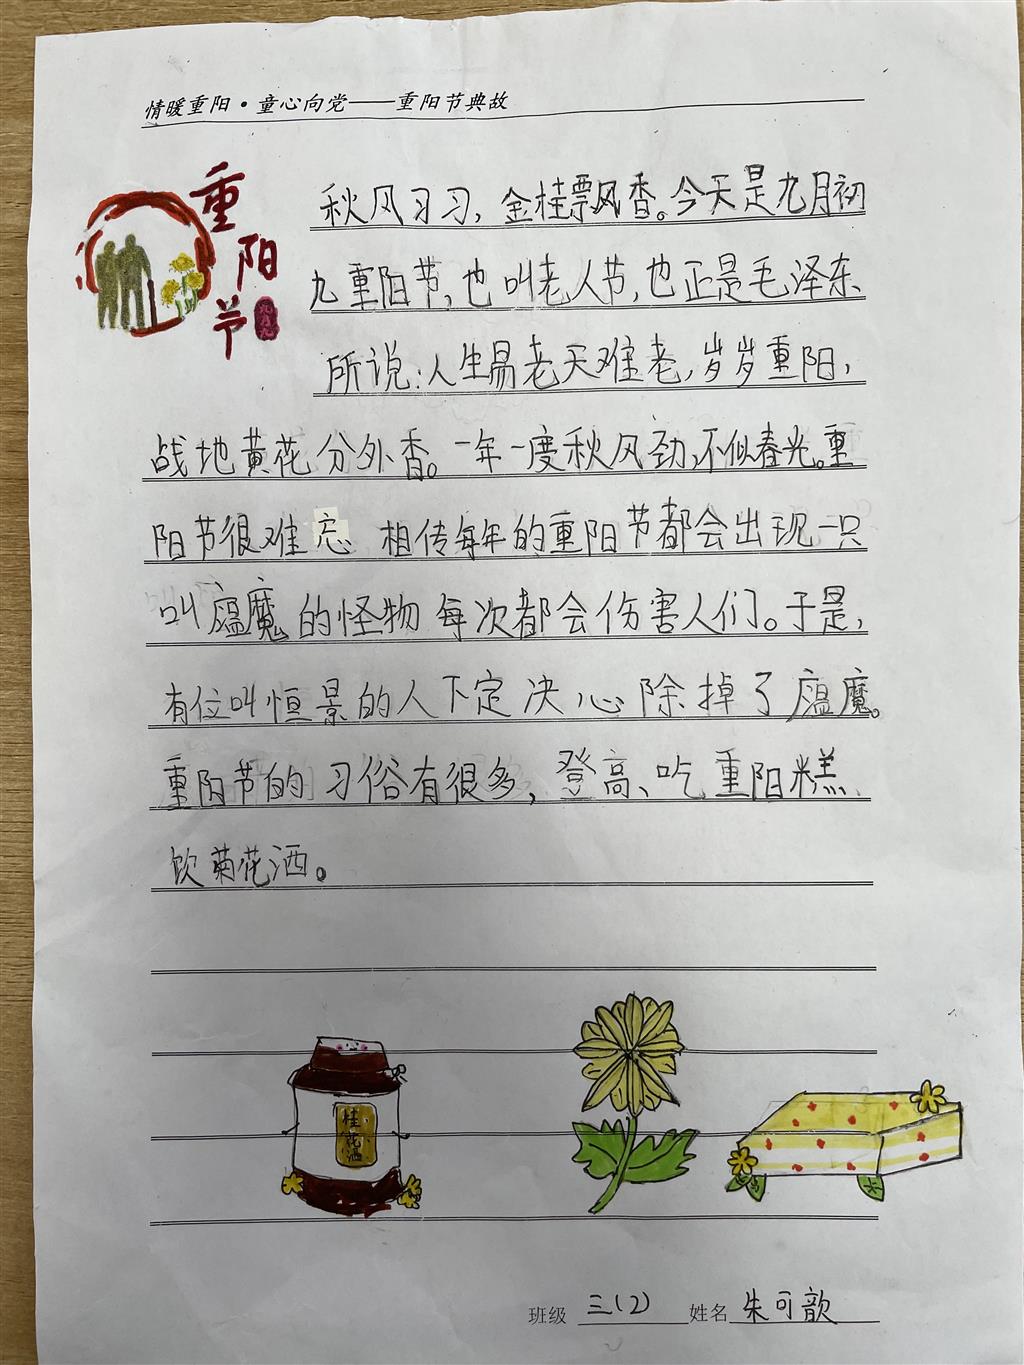 情暖重阳·童心向党——重阳节典故
重阳节
九九
秋风习习，金桂飘风香。今天是九月初
九重阳节，也叫老人节，也正是毛泽东
所说：人生易老天难老，岁岁重阳，
战地黄花分外香。一年一度秋风劲，不似春光。重
阳节很难忘 相传每年的重阳节都会出现一只
叫瘟魔的怪物每次都会伤害人们。于是，
有位叫恒景的人下定决心除掉了瘟魔。
重阳节的习俗有很多，登高、吃重阳糕
饮菊花酒。
桂花酒
班级 三(2) 姓名 朱可歆